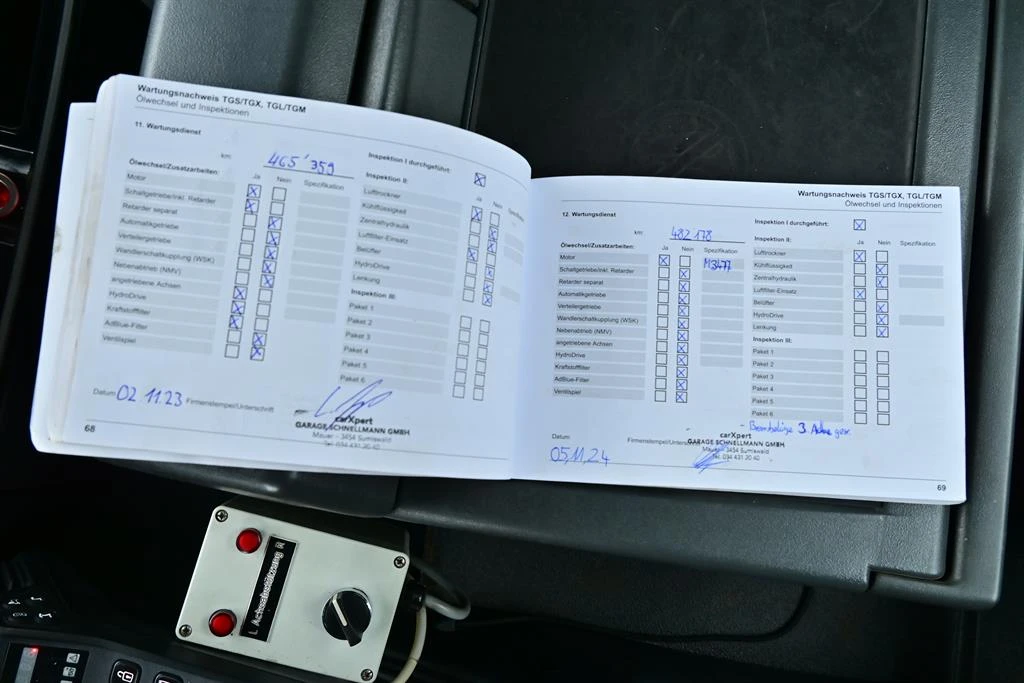 Wartungsnachweis TGS/TGX, TGL/TGM
Ölwechsel und Inspektionen
11. Wartungsdienst
km: 465'359
Ölwechsel/Zusatzarbeiten: Ja Nein Spezifikation
Motor
Schaltgetriebe/inkl. Retarder
Retarder separat
Automatikgetriebe
Verteilergetriebe
Wandlerschaltkupplung (WSK)
Nebenabtrieb (NMV)
angetriebene Achsen
HydroDrive
Kraftstofffilter
AdBlue-Filter
Ventilspiel
Inspektion I durchgeführt:
Inspektion II: Ja Nein Spezifikation
Lufttrockner
Kühlflüssigkeit
Zentralhydraulik
Luftfilter-Einsatz
Belüfter
HydroDrive
Lenkung
Inspektion III:
Paket 1
Paket 2
Paket 3
Paket 4
Paket 5
Paket 6
Datum 02.11.23 Firmenstempel/Unterschrift
carXpert
GARAGE SCHNELLMANN GMBH
Mauer - 3454 Sumiswald
Tel. 034 431 20 40
68
Wartungsnachweis TGS/TGX, TGL/TGM
Ölwechsel und Inspektionen
12. Wartungsdienst
km: 482178
Ölwechsel/Zusatzarbeiten: Ja Nein Spezifikation
Motor M3477
Schaltgetriebe/inkl. Retarder
Retarder separat
Automatikgetriebe
Verteilergetriebe
Wandlerschaltkupplung (WSK)
Nebenabtrieb (NMV)
angetriebene Achsen
HydroDrive
Kraftstofffilter
AdBlue-Filter
Ventilspiel
Inspektion I durchgeführt:
Inspektion II: Ja Nein Spezifikation
Lufttrockner
Kühlflüssigkeit
Zentralhydraulik
Luftfilter-Einsatz
Belüfter
HydroDrive
Lenkung
Inspektion III:
Paket 1
Paket 2
Paket 3
Paket 4
Paket 5
Paket 6
3. Achse
Datum Firmenstempel/Unterschrift
05.11.24
carXpert
GARAGE SCHNELLMANN GMBH
Mauer - 3454 Sumiswald
Tel. 034 431 20 40
69